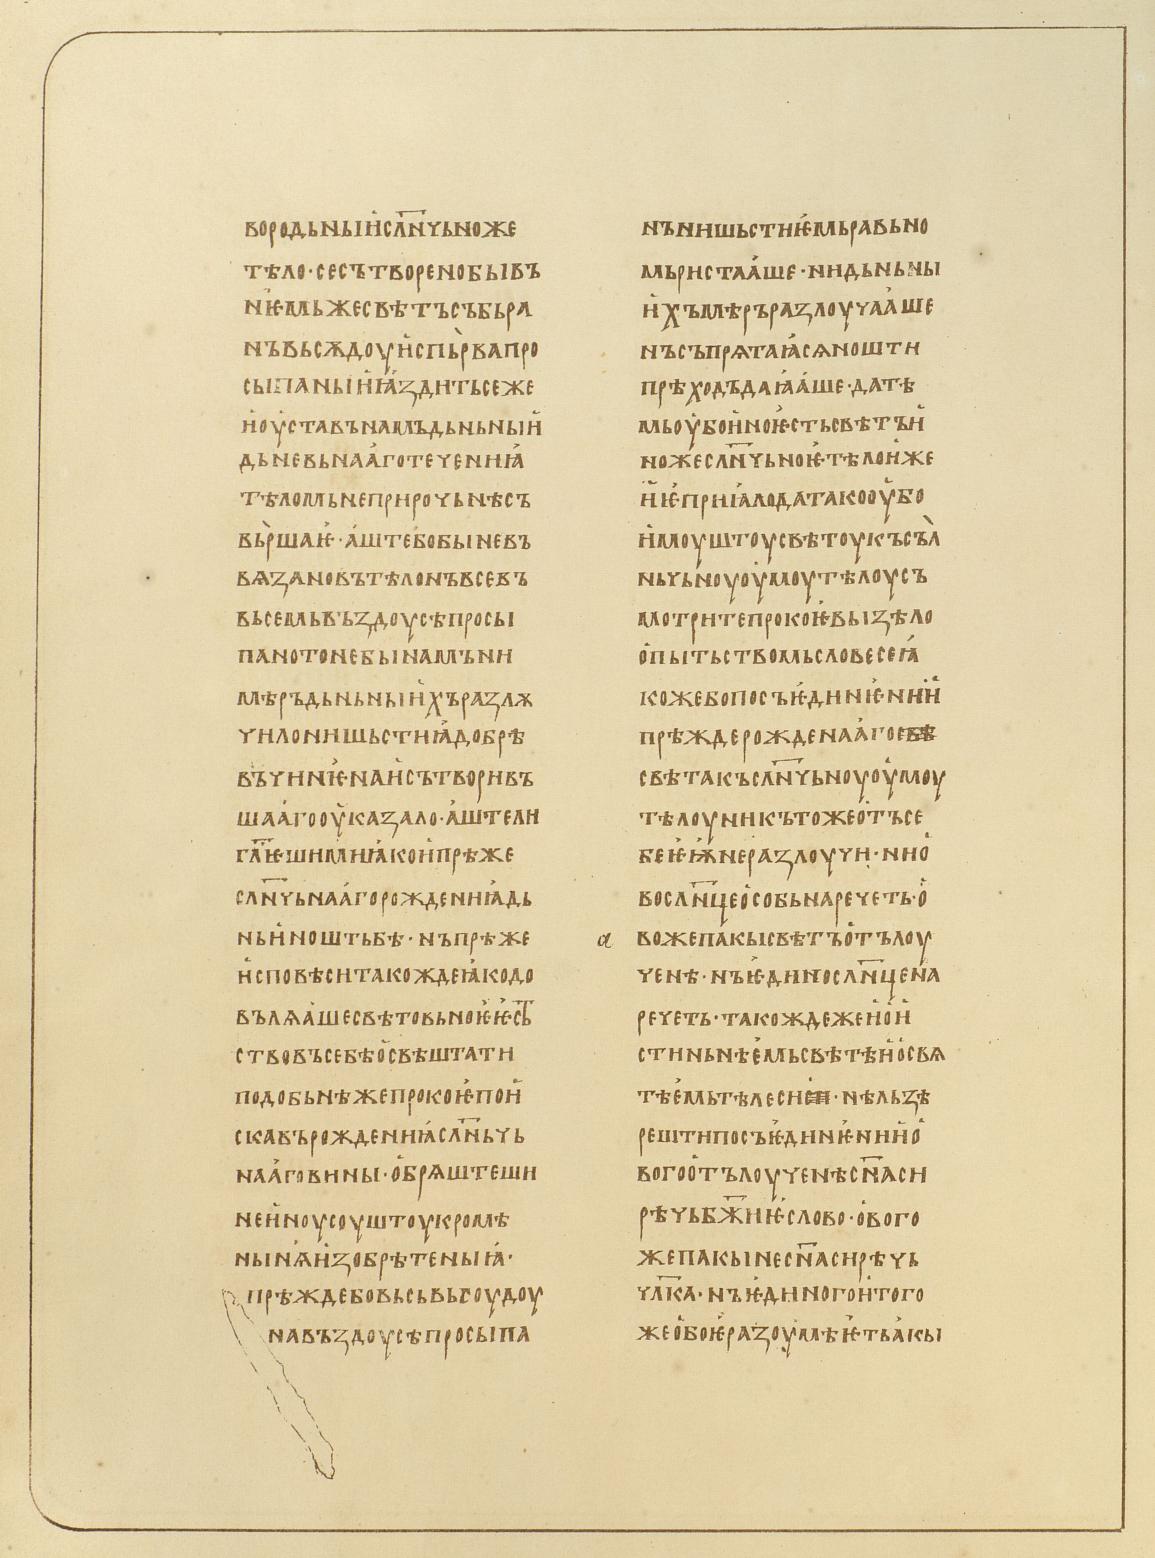 вородьныи҆сл҃ньчьноже
тѣло·сесътвореновывъ
ниѥмьжесвѣтъсъбьра
нъвьсѫдоуи҆спьр̀вапро
сыпаныи҆ꙗ҆здитьсеже
и҆оу҆ставънамъдьньныи҆
дьневьнаа҆готечениꙗ҆
тѣломьнеприрочьнѣсъ
вьр̀шаѥ҆·а҆штебобыневъ
вѧзановътѣлонъвсевъ
вьсемьвъздоусѣпросы
панотонебꙑнамъни
мѣръдьньныи҆хъразлѫ
чилонишьстиꙗ҆добрѣ
въчиниѥ҆наи҆сътворивъ
шаа҆гооу҆казало·а҆штели
гл҃ѥшимиꙗ҆кои҆прѣже
сл҃ньчьнаа҆горождениꙗ҆дь
ньи҆ноштьбѣ·нъпрѣже
и҆сповѣситакождеꙗ҆кодо
вълѧа҆шесвѣтовьноѥ҆ѥ҆сть
ствовъсебѣо҆свѣштати
подобьнѣжепрокоѥ҆пои҆
скавърождениꙗ҆сл҃ньчь
наа҆говины·о҆брѧштеши
неи҆ноусоуштоукромѣ
нынꙗ҆и҆зобрѣтеныꙗ҆·
прѣждебовьсьвьгоудоу
навъздоусѣпросыпа
нънишьстиѥ҆мьравьно
мьристаа҆ше·нидьньны
и҆хъмѣръразлоучаа҆ше
нъсъпрѧтаꙗ҆сѧношти
прѣходъдаꙗа҆ше·датѣ
мьоу҆бои҆ноѥ҆стьсвѣтъи҆
ножесл҃ньчьноѥ҆·тѣлои҆же
и҆ѥ҆приꙗ҆лодатакооу҆бо
и҆моуштоусвѣтоукъсъл̀
ньчьноуоу҆моутѣлоусъ
мотритепрокоѥ҆выѕѣло
о҆пытьствомьсловесеꙗ҆
кожебопосъѥ҆диниѥ҆нии҆
прѣждерожденаа҆го
свѣтакъсл҃ньчьноуоу҆моу
тѣлоуниктъожео҆тъсе
беѥ҆ѭ҆неразлоучи·нио҆
восл҃нцео҆собьнаречеть·о҆
вожепакысвѣтъо҆тълоу
ченѣ·нъѥ҆диносл҃нцена
речеть·такождежеи҆о҆и҆
стиньнѣе҆мьсвѣтѣи҆о҆свѧ
тѣе҆мьтѣлеси·нѣльзѣ
рештипосъѥ҆диниѥ҆нии҆о҆
вогоо҆тълоученѣсн҃аси
рѣчьбж҃иѥ҆слово·о҆вого
жепакынесн҃асирѣчь
чл҃ка·нъѥ҆диногои҆того
жео҆боѥ҆разоу҆мѣѥ҆тьа҆кы